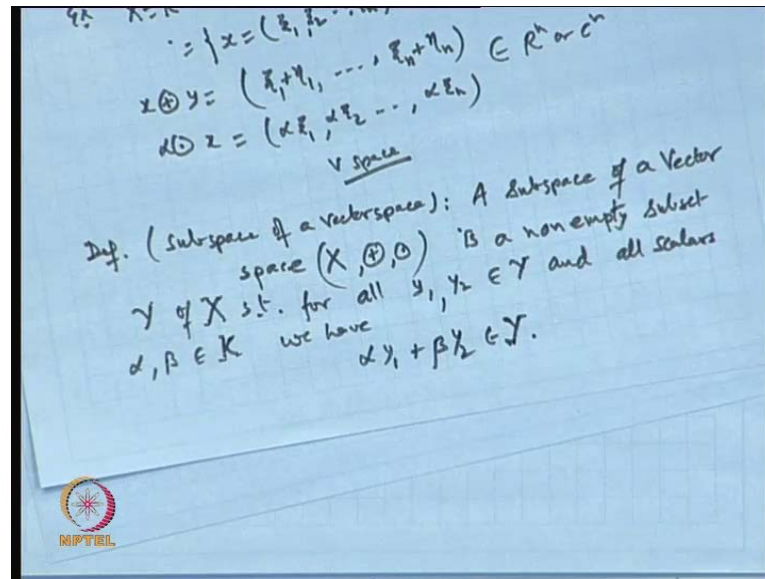 Ex.
= { x = (ξ₁, ξ₂
x ⊕ y = (ξ₁+η₁, ---, ξₙ+ηₙ) ∈ Rⁿ or Cⁿ
α ⊙ x = (αξ₁, αξ₂ --, αξₙ)
V space
Def. (Subspace of a vectorspace): A Subspace of a Vector
space (X, ⊕, ⊙) is a non empty subset
Y of X s.t. for all y₁, y₂ ∈ Y and all scalars
α, β ∈ K we have
αy₁ + βy₂ ∈ Y.
NPTEL